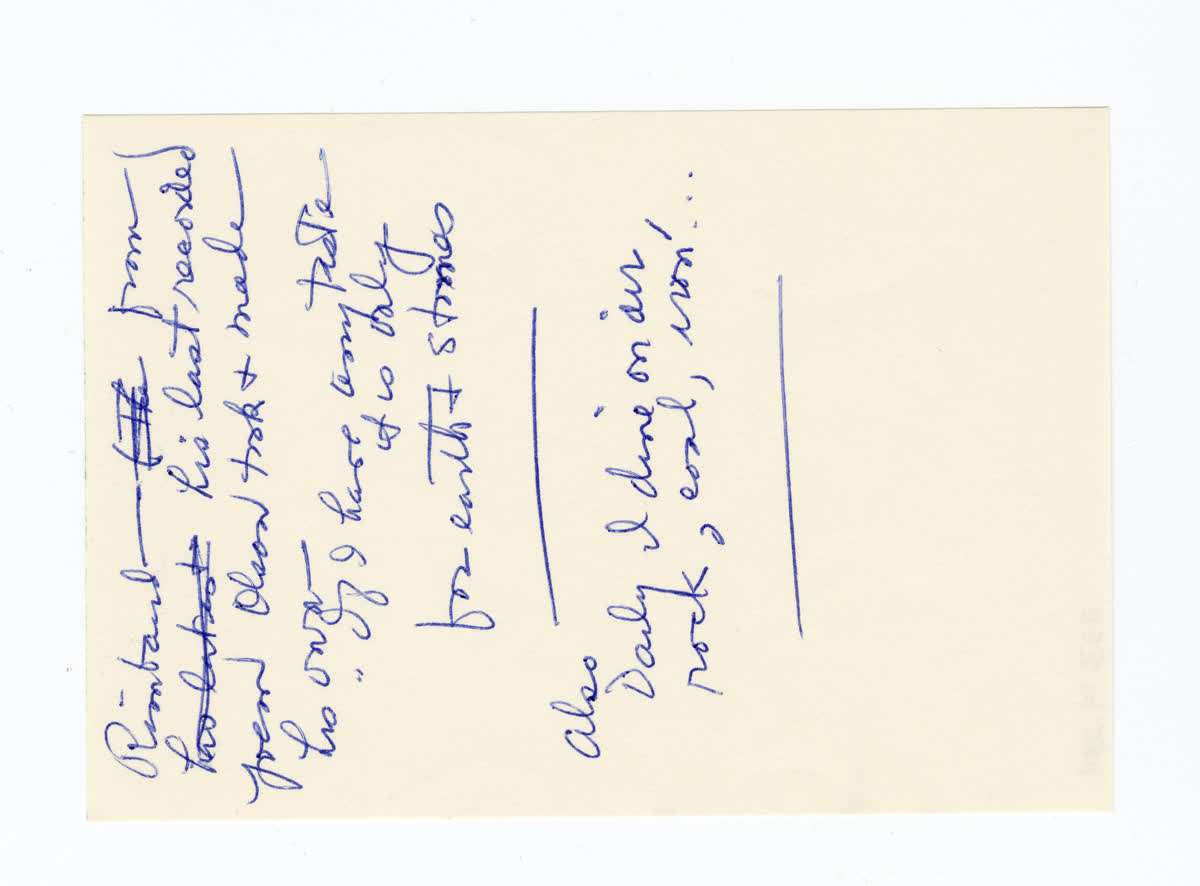 Rimbaud — ~~(The~~ from
~~his latest~~ his last recorded
poem Olson took + made
his own —
" If I have any taste
it is only
for earth + stones
Also
Daily I dine on air
rock, coal, iron! ...